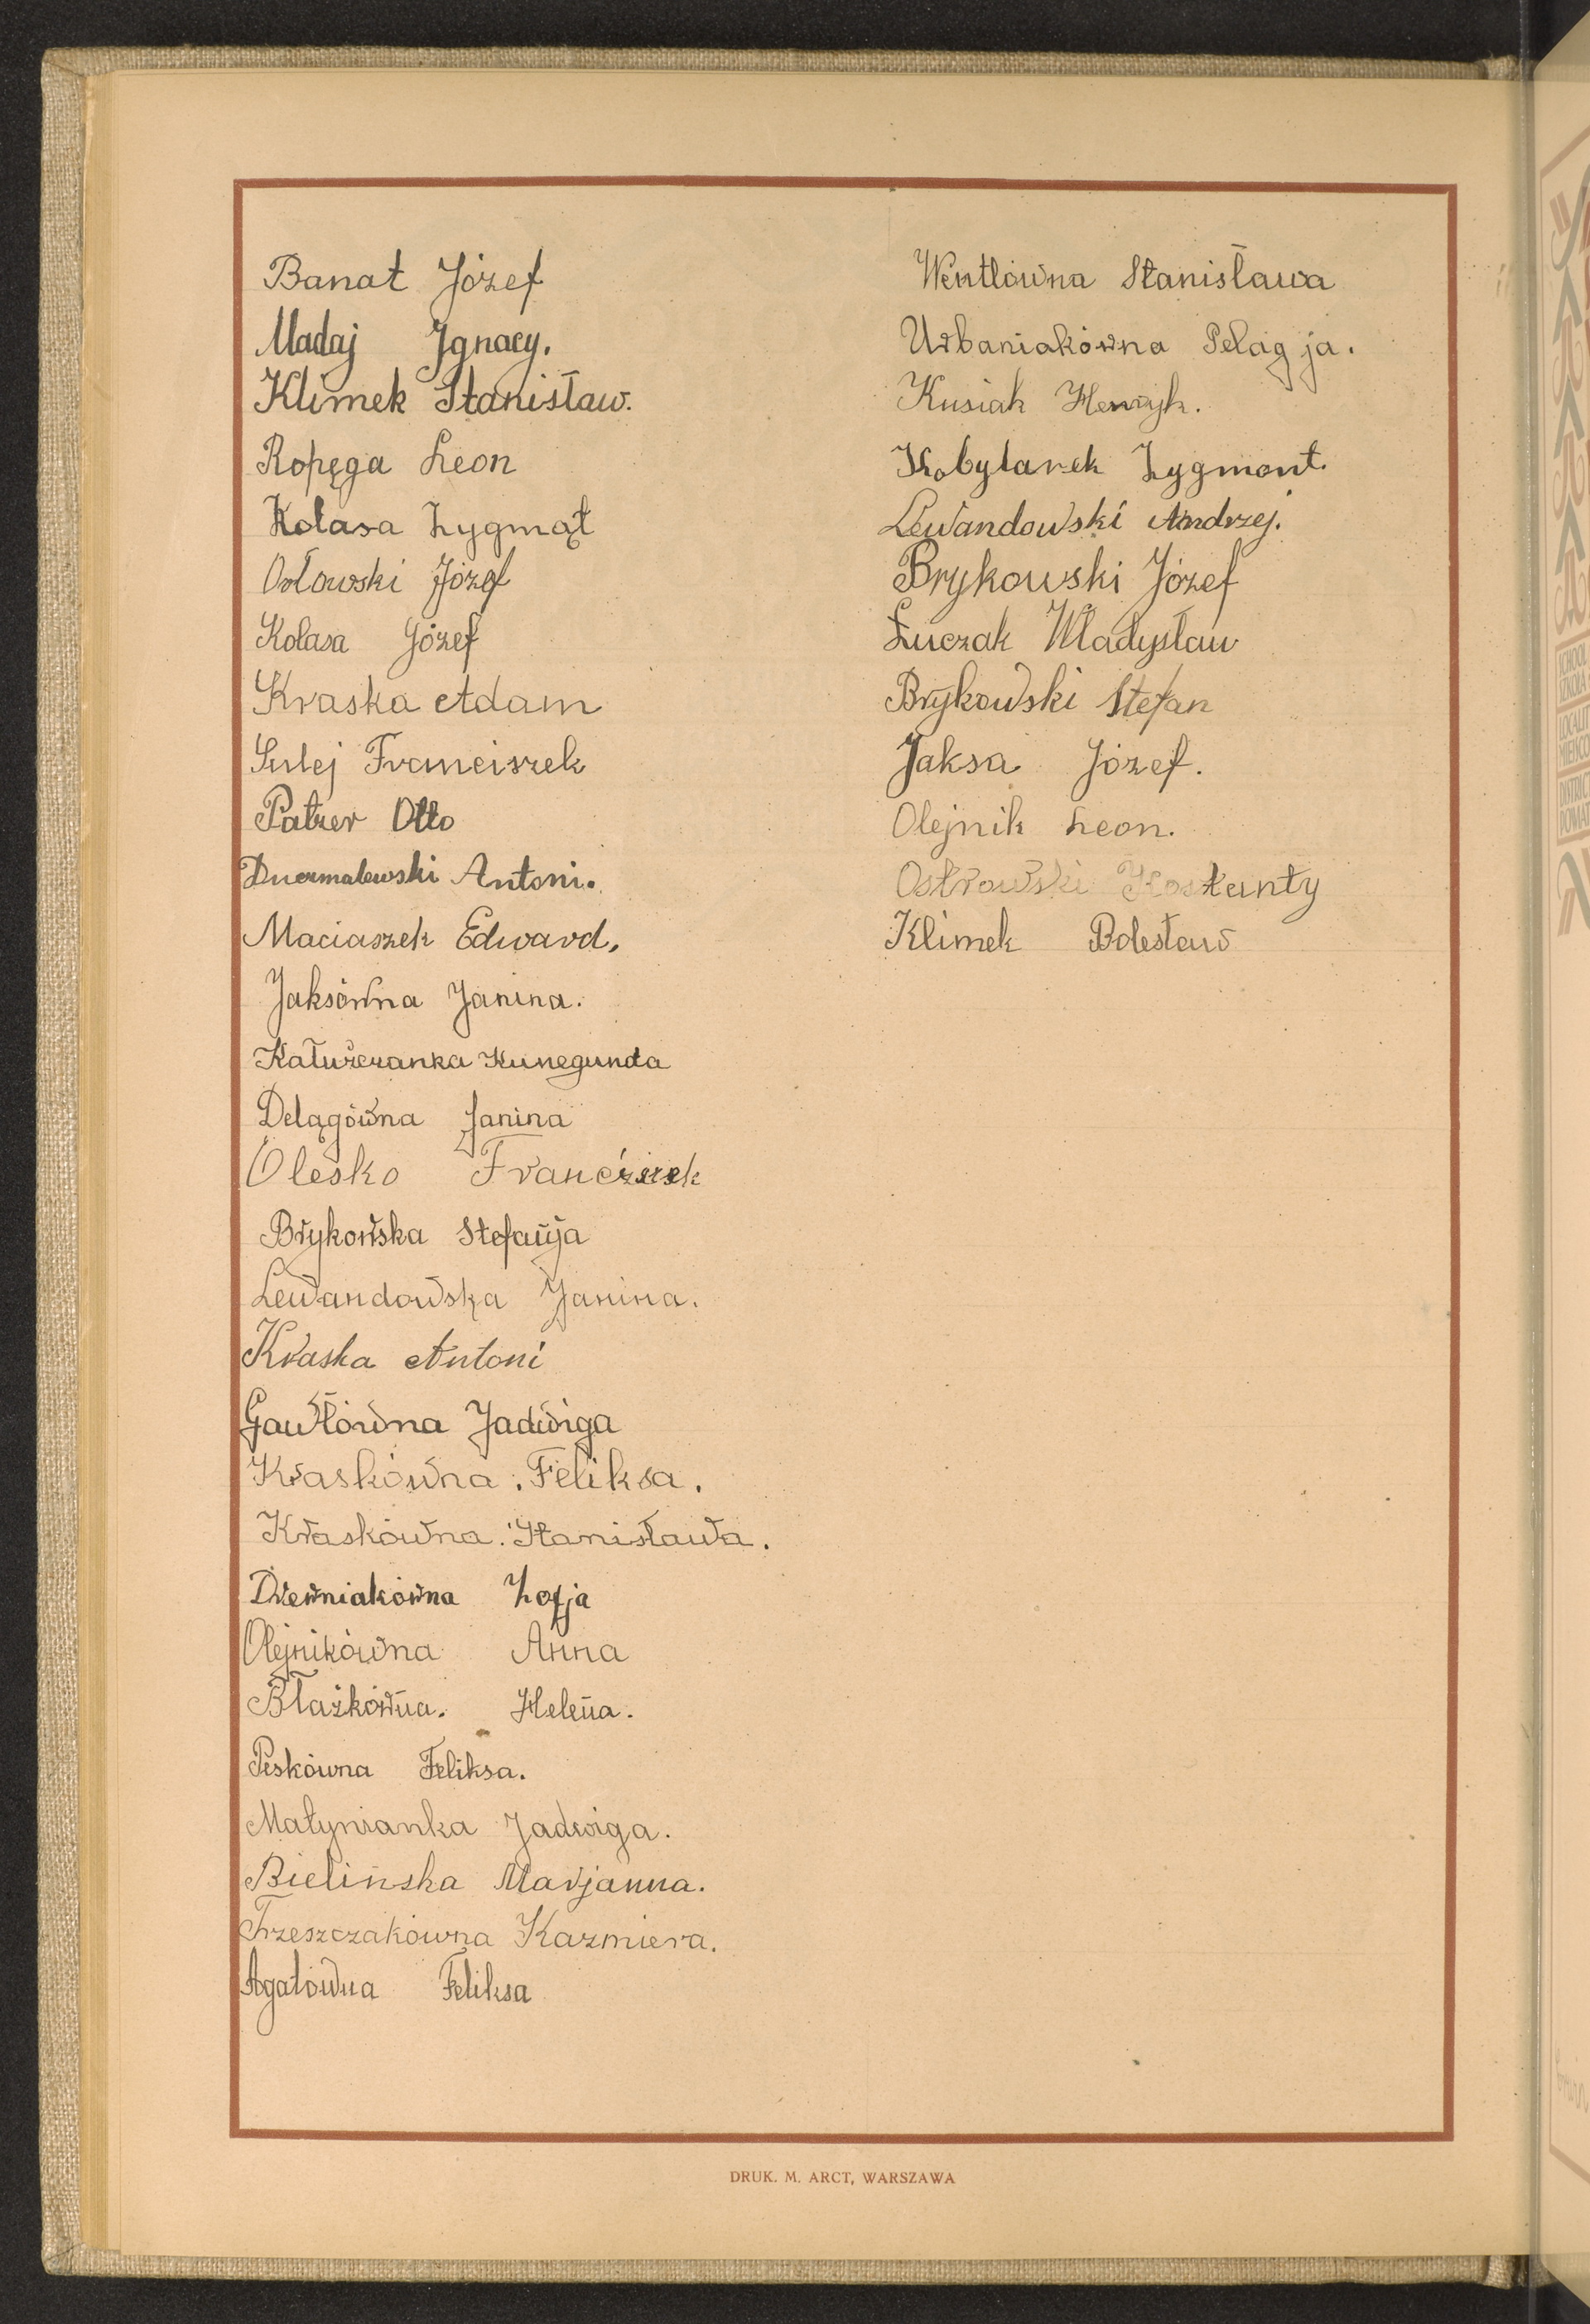 Banat Józef
Madaj Ignacy.
Klimek Stanisław.
Ropęga Leon
Kolasa Zygmąt
Orłowski Józef
Kolasa Józef
Kraska Adam
Sulej Franciszek
Patzer Otto
Antoni.
Maciaszek Edward,
Jaksówna Janina.
Kałużczanka Kunegunda
Delągówna Janina
Olesko Francizsek
Brykowska Stefanja
Lewandowska Janina.
Kraska Antoni
Gawłówna Jadwiga
Kraskówna. Feliksa.
Kraskówna. Stanisława.
Drewniakówna Zofja
Olejnikówna Anna
Błażkówna. Helena.
Peskówna Feliksa.
Małynianka Jadwiga.
Bielińska Marjanna.
Trzeszczakówna Kazmiera.
Agatówna Feliksa
Wentlówna Stanisława
Urbaniakówna Pelagja.
Kusiak Henryk.
Kobylarek Zygmont.
Lewandowski Andrzej.
Brykowski Józef
Łuczak Władysław
Brykowski Stefan
Jaksa Józef.
Olejnik Leon.
Ostrowski Kostanty
Klimek Bolesław
DRUK. M. ARCT, WARSZAWA